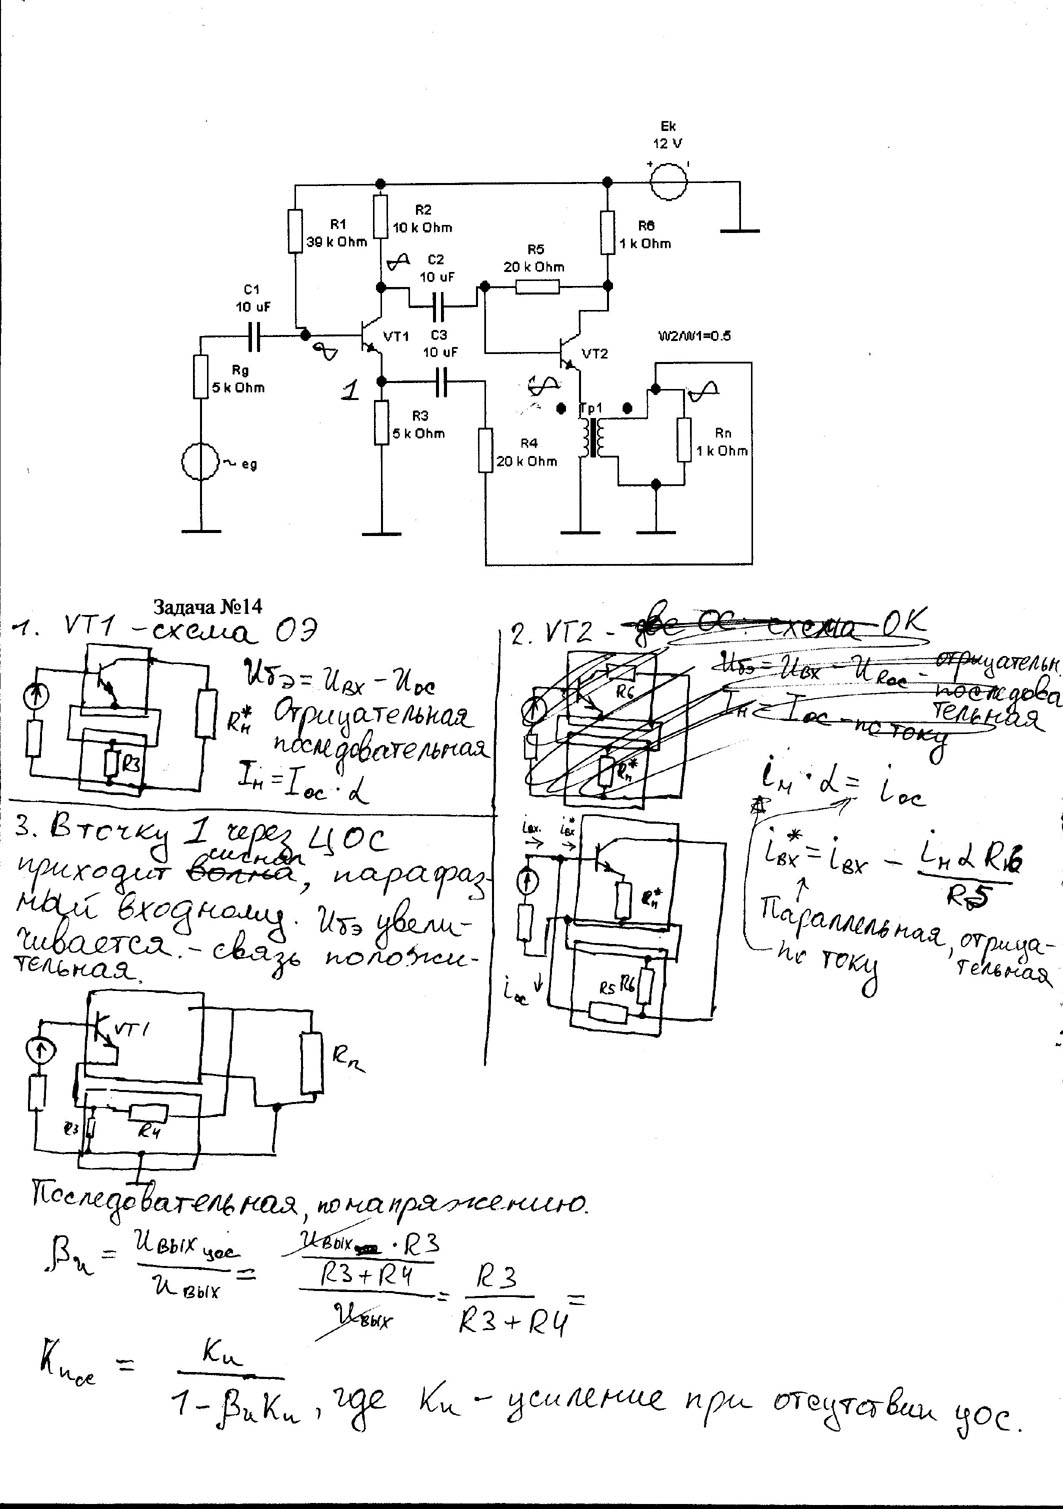 Ek
12 V
R1
39 k Ohm
R2
10 k Ohm
R6
1 k Ohm
C2
10 uF
R5
20 k Ohm
C1
10 uF
VT1
C3
10 uF
VT2
W2/W1=0.5
Rg
5 k Ohm
1
R3
5 k Ohm
Tp1
R4
20 k Ohm
Rn
1 k Ohm
~ eg
Задача №14
1. VT1 - схема ОЭ
Uбэ = Uвх - Uос
Отрицательная
последовательная
Iн = Iос · α
Rн*
R3
2. VT2 - две ОС. схема ОК
Uбэ = Uвх - URос - отрицательн
последова
тельная
Iн = Iос - по току
R6
Rн*
iн · α = iос
iвх* = iвх - iн α R6 / R5
Параллельная, отрица-
тельная
по току
iвх. iвх*
Rн*
iос
R5 R6
3. В точку 1 через ЦОС
приходит волна сигнал, парафаз-
ный входному. Uбэ увели-
чивается. - связь положи-
тельная.
VT1
Rn
R3
R4
Последовательная, по напряжению.
βu = Uвых цос / Uвых = Uвых · R3 / R3 + R4 / Uвых = R3 / R3 + R4 =
Kuос = Ku / 1 - βuKu, где Ku - усиление при отсутствии цос.